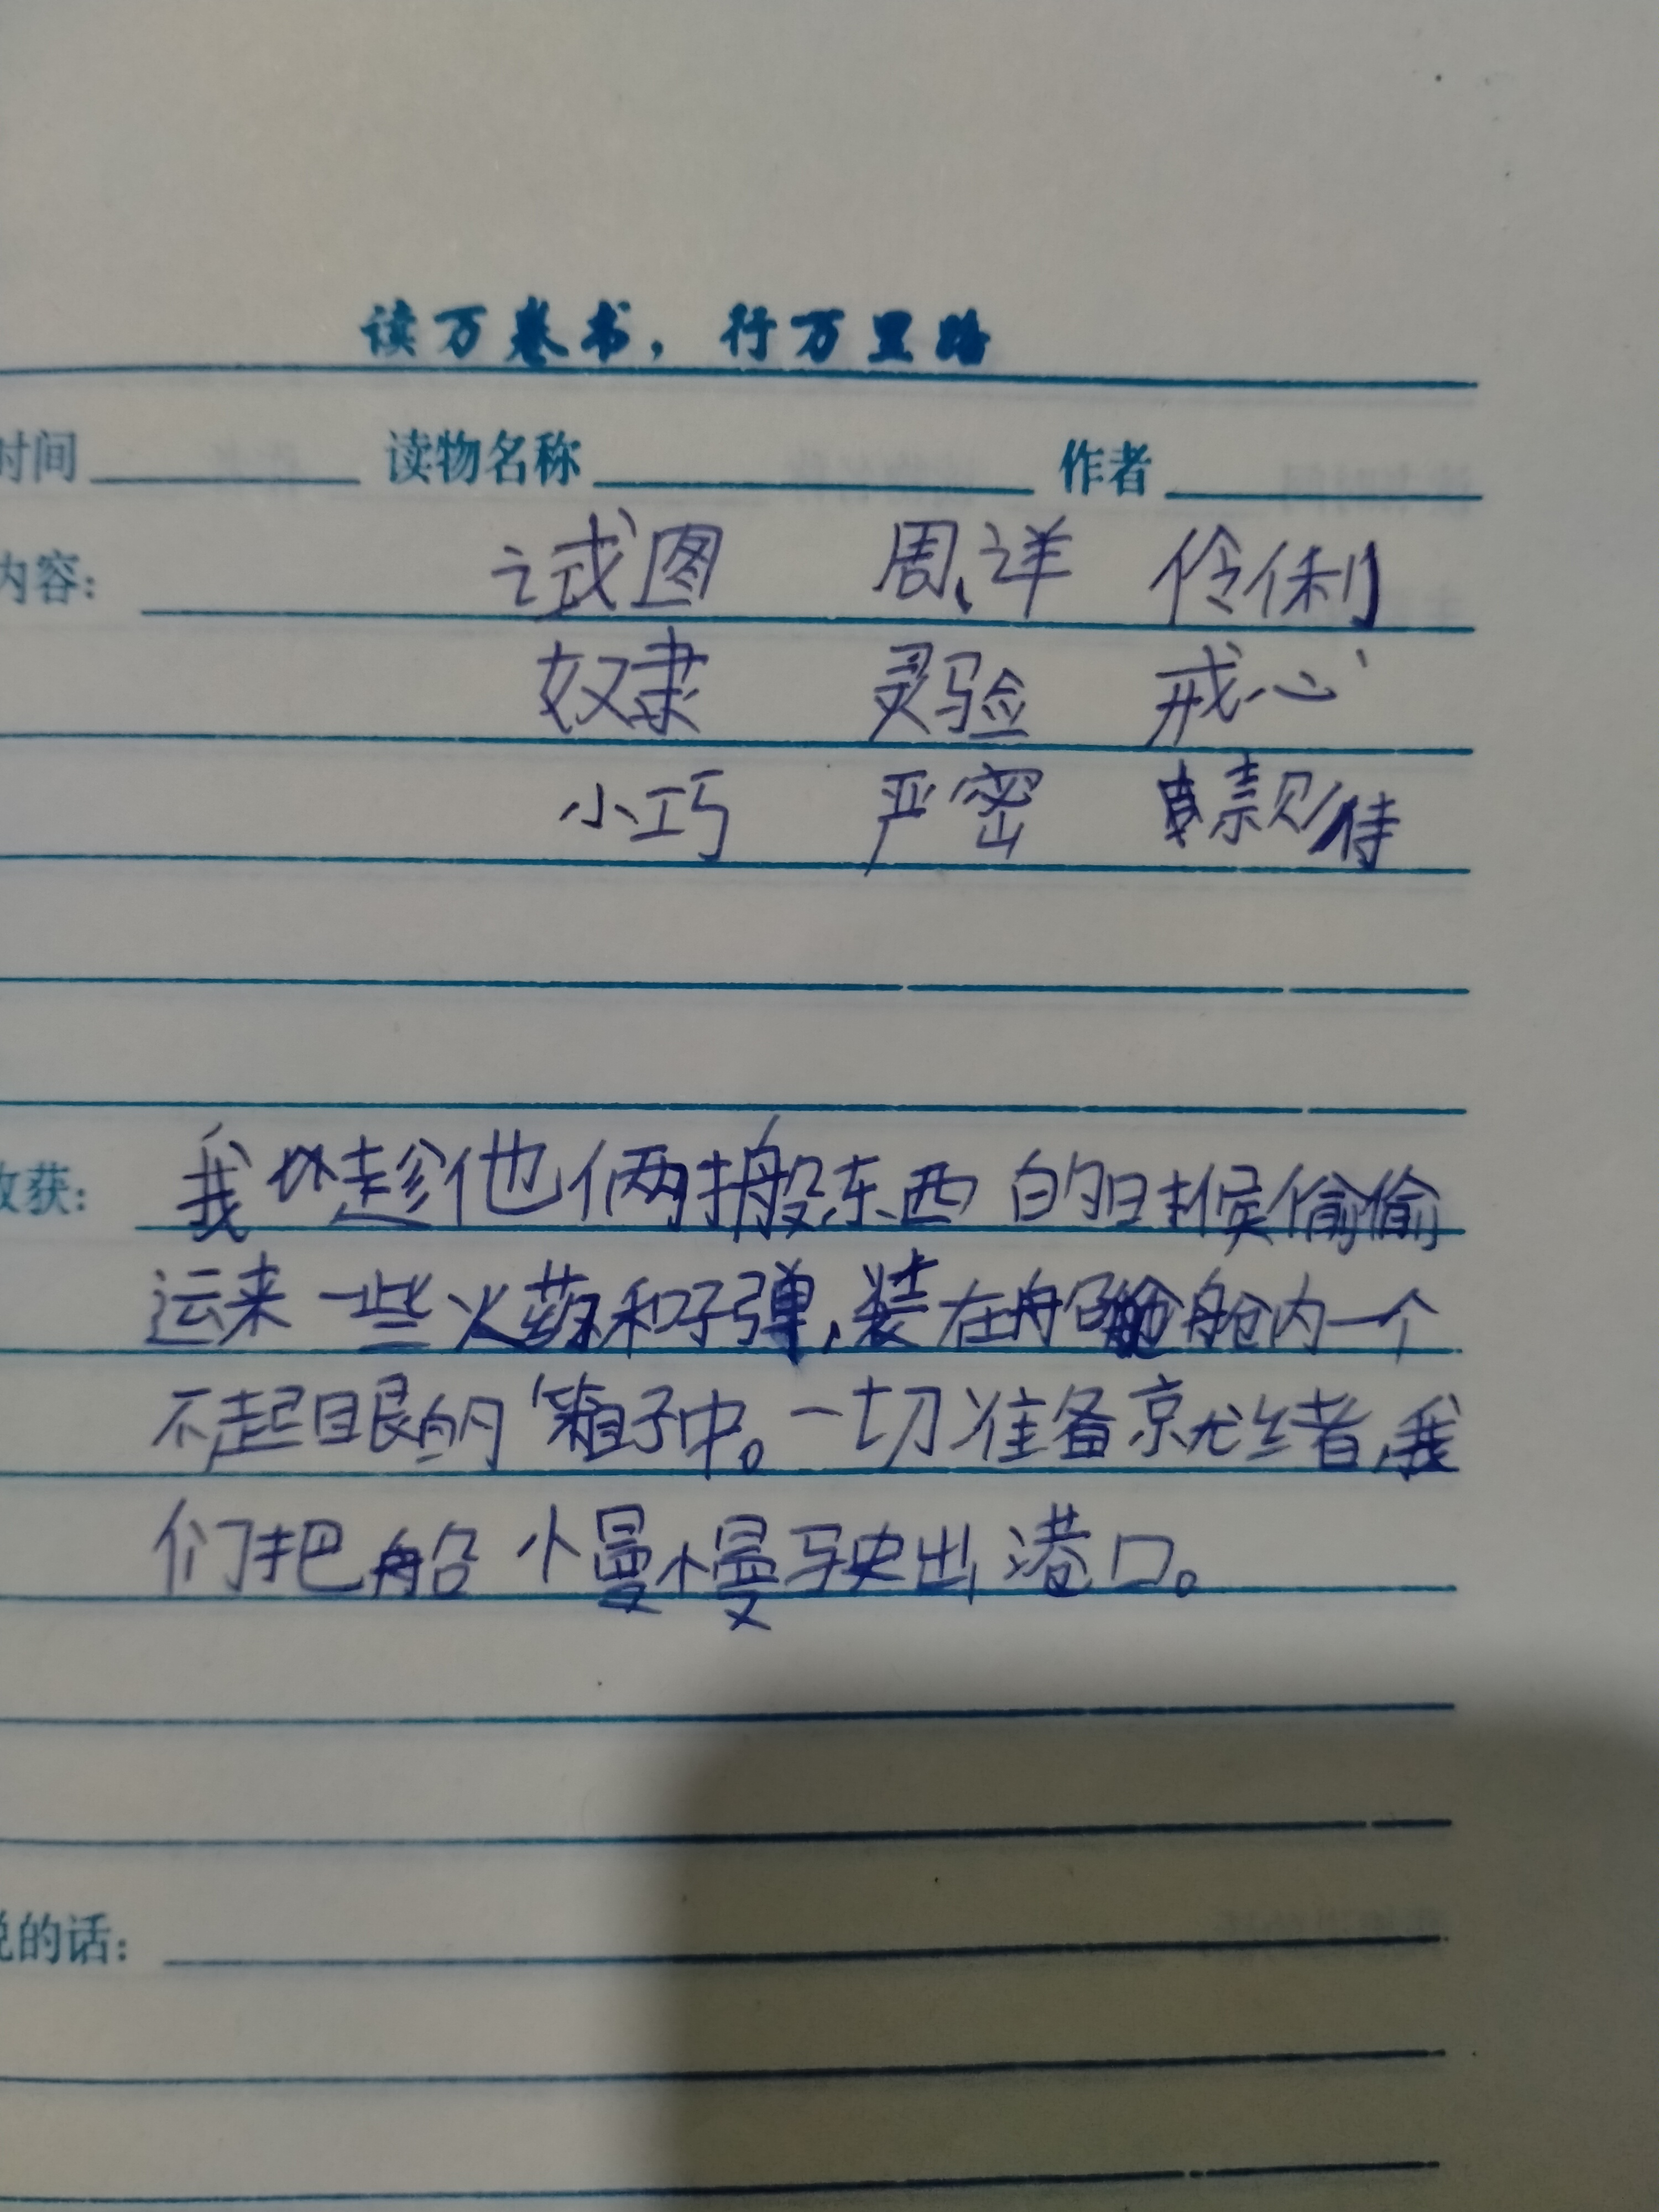 读万卷书，行万里路
时间 读物名称 作者
内容： 试图 周详 伶俐
奴隶 灵验 戒心
小巧 严密 款待
收获： 我趁他俩搬东西的时候偷偷
运来一些火药和子弹，装在船舱内一个
不起眼的箱子中。一切准备就绪者，我
们把船慢慢驶出港口。
说的话：